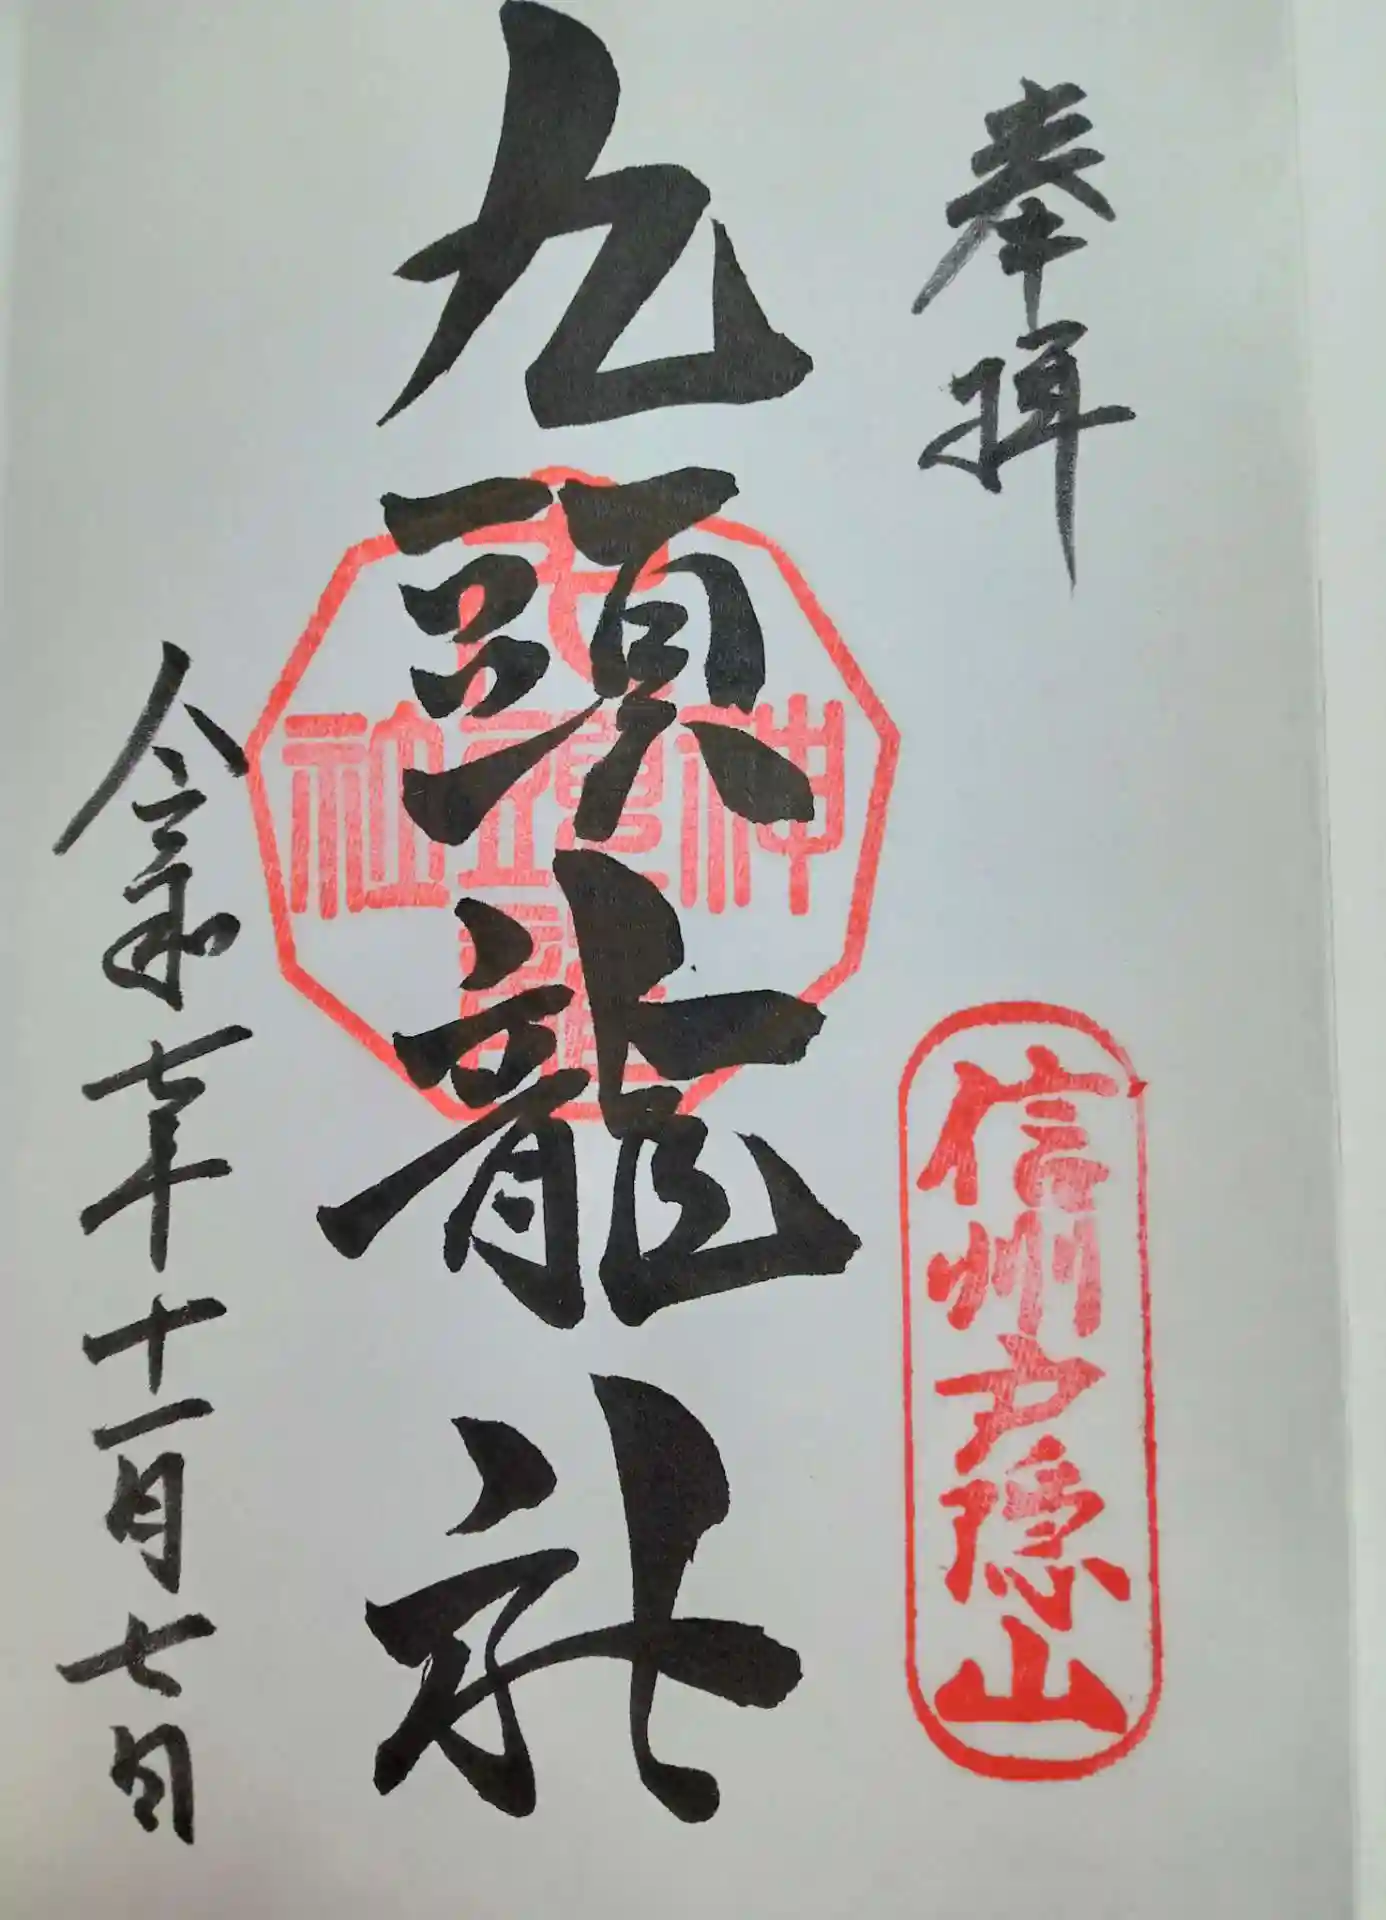 奉拜
信州戸隠山
九頭龍社
神社
令和七年十一月七日